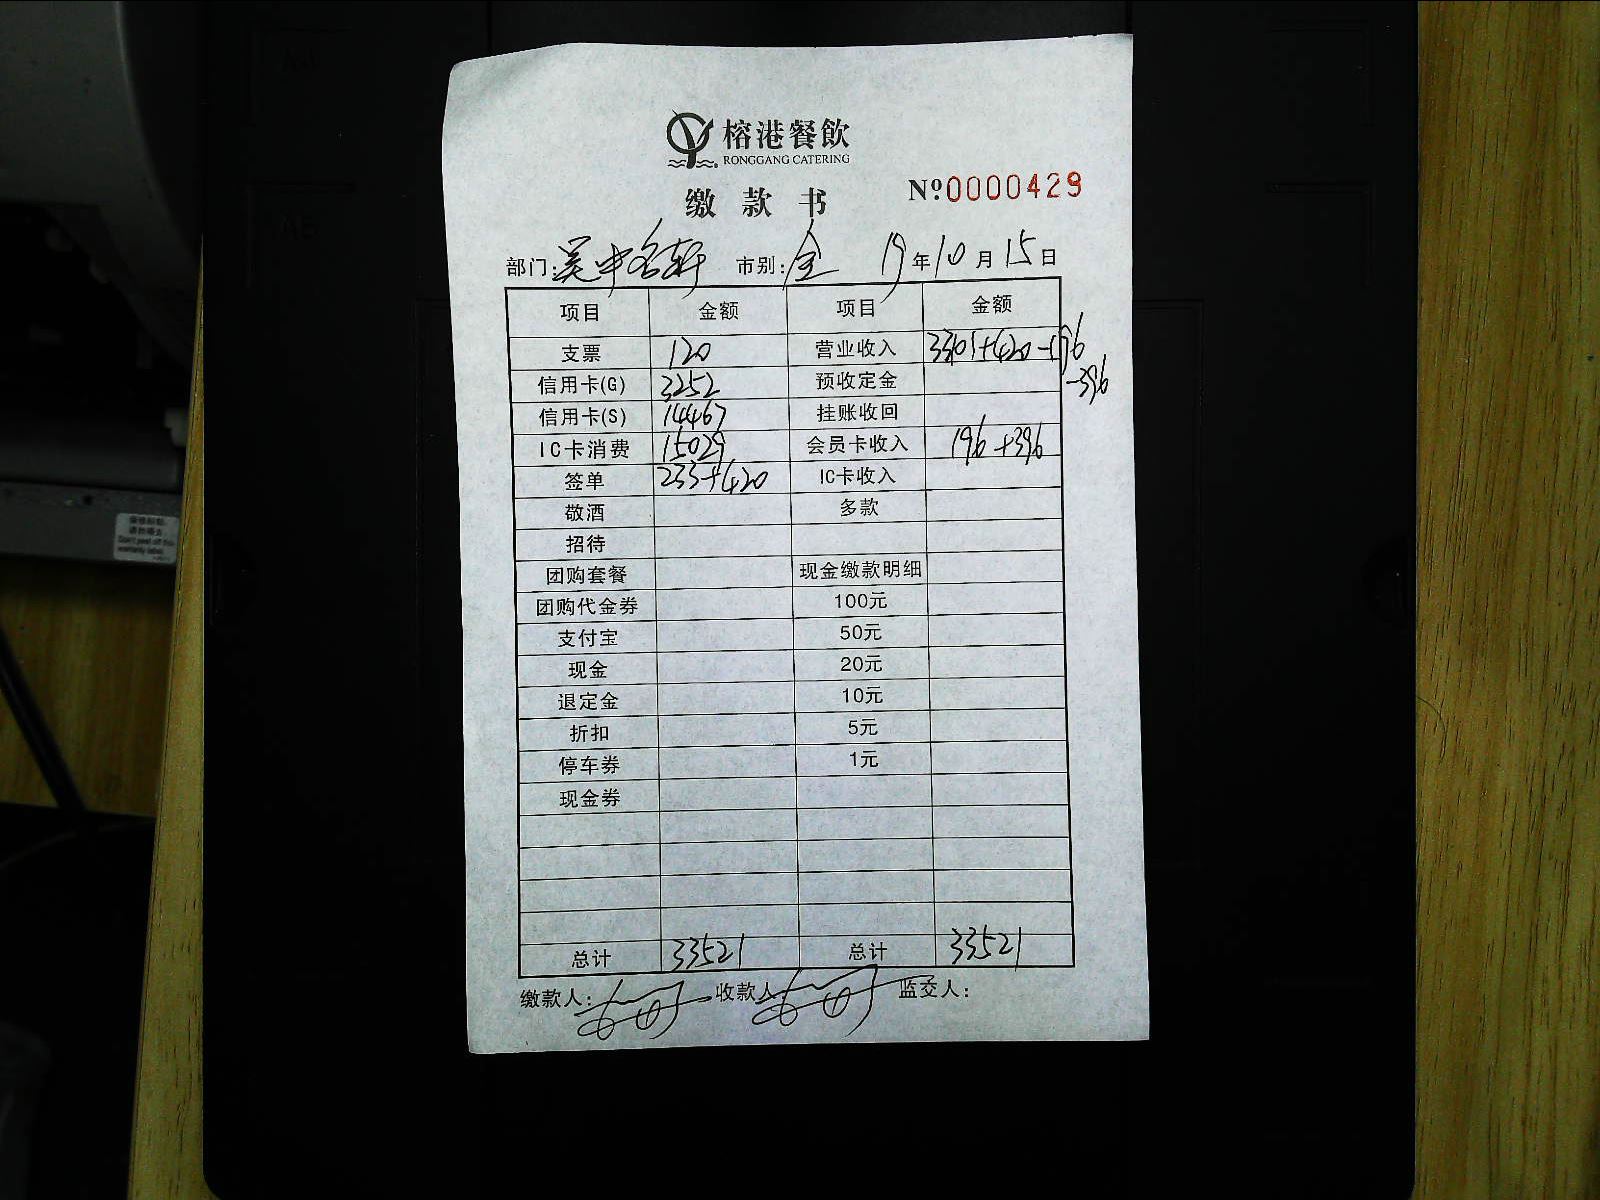 榕港餐飲
RONGGANG CATERING
缴款书 Nº0000429
部门：吴中名轩 市别：全 19年10月15日
项目 金额 项目 金额
支票 120 营业收入 33101+420-196
-396
信用卡(G) 3252 预收定金
信用卡(S) 14467 挂账收回
IC卡消费 15029 会员卡收入 196+396
签单 233+420 IC卡收入
敬酒 多款
招待
团购套餐 现金缴款明细
团购代金券 100元
支付宝 50元
现金 20元
退定金 10元
折扣 5元
停车券 1元
现金券
总计 33521 总计 33521
缴款人： 收款人 监交人：
Don't peel off this
warranty label